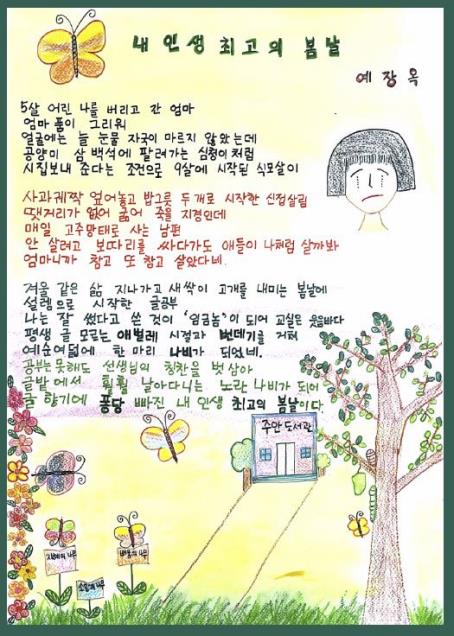 내 인생 최고의 봄날
예장옥
5살 어린 나를 버리고 간 엄마
엄마 품이 그리워
얼굴에는 늘 눈물 자국이 마르지 않았는데
공양미 삼백석에 팔려가는 심청이처럼
시집보내 준다는 조건으로 9살에 시작된 식모살이
사과궤짝 엎어놓고 밥그릇 두개로 시작한 신접살림
땟거리가 없어 굶어 죽을 지경인데
매일 고주망태로 사는 남편
안 살려고 보따리를 싸다가도 애들이 나처럼 살까봐
엄마니까 참고 또 참고 살았다네.
겨울 같은 삶 지나가고 새싹이 고개를 내미는 봄날에
설렘으로 시작한 글공부
나는 잘 썼다고 쓴 것이 '엉금놈'이 되어 교실은 웃음바다
평생 글 모르는 애벌레 시절과 번데기를 거쳐
예순여덟에 한 마리 나비가 되었네.
공부는 못해도 선생님의 칭찬을 벗 삼아
글밭에서 훨훨 날아다니는 노란 나비가 되어
글 향기에 퐁당 빠진 내 인생 최고의 봄날이다.
주안도서관
지혜의 나무
소망의 나무